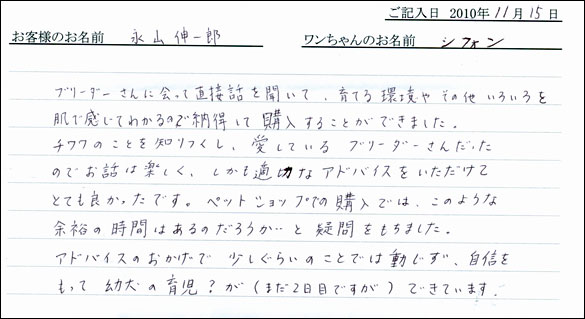 ご記入日 2010年11月15日
お客様のお名前 永山伸一郎 ワンちゃんのお名前 シフォン
ブリーダーさんに会って直接話を聞いて、育てる環境やその他いろいろを
肌で感じてわかるので納得して購入することができました。
チワワのことを知りつくし、愛しているブリーダーさんだった
のでお話は楽しく、しかも適切なアドバイスをいただけて
とても良かったです。ペットショップでの購入では、このような
余裕の時間はあるのだろうか…と疑問をもちました。
アドバイスのおかげで少しぐらいのことでは動じず、自信を
もって幼犬の育児？が(まだ2日目ですが)できています。